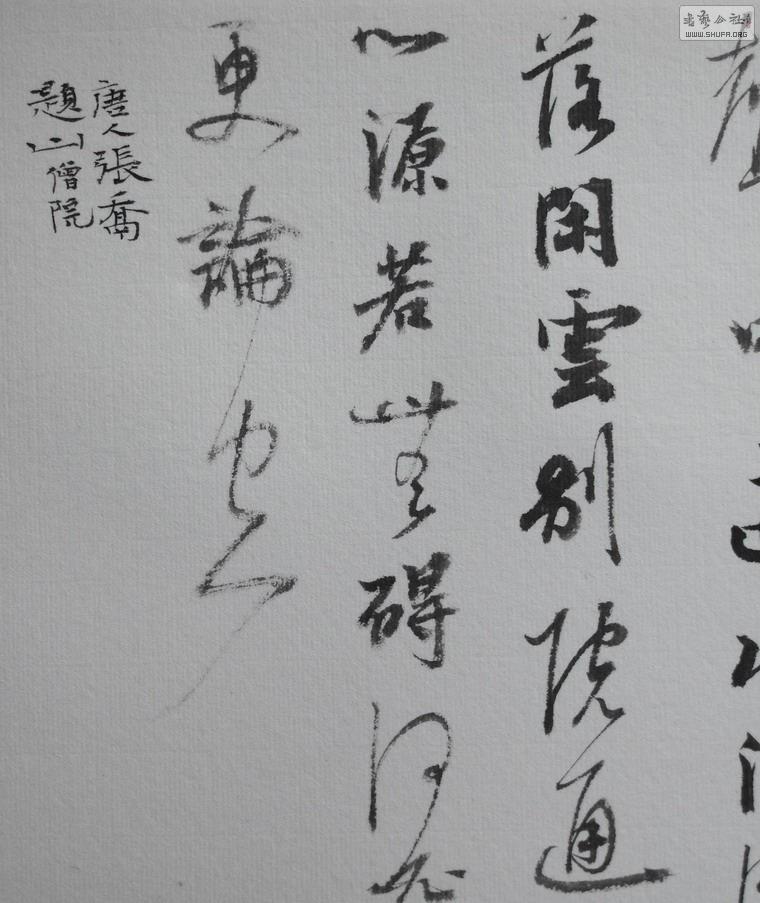 落閑雲别院通
心源若無碍何必
更論空
唐人張喬
題山僧院
書藝公社
WWW.SHUFA.ORG